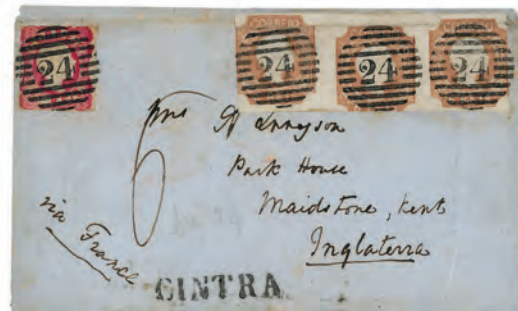 24
CORREIO
24 24 24
Mrs A Tennyson
Park House
Maidstone, Kent
Inglaterra
6
via France
CINTRA